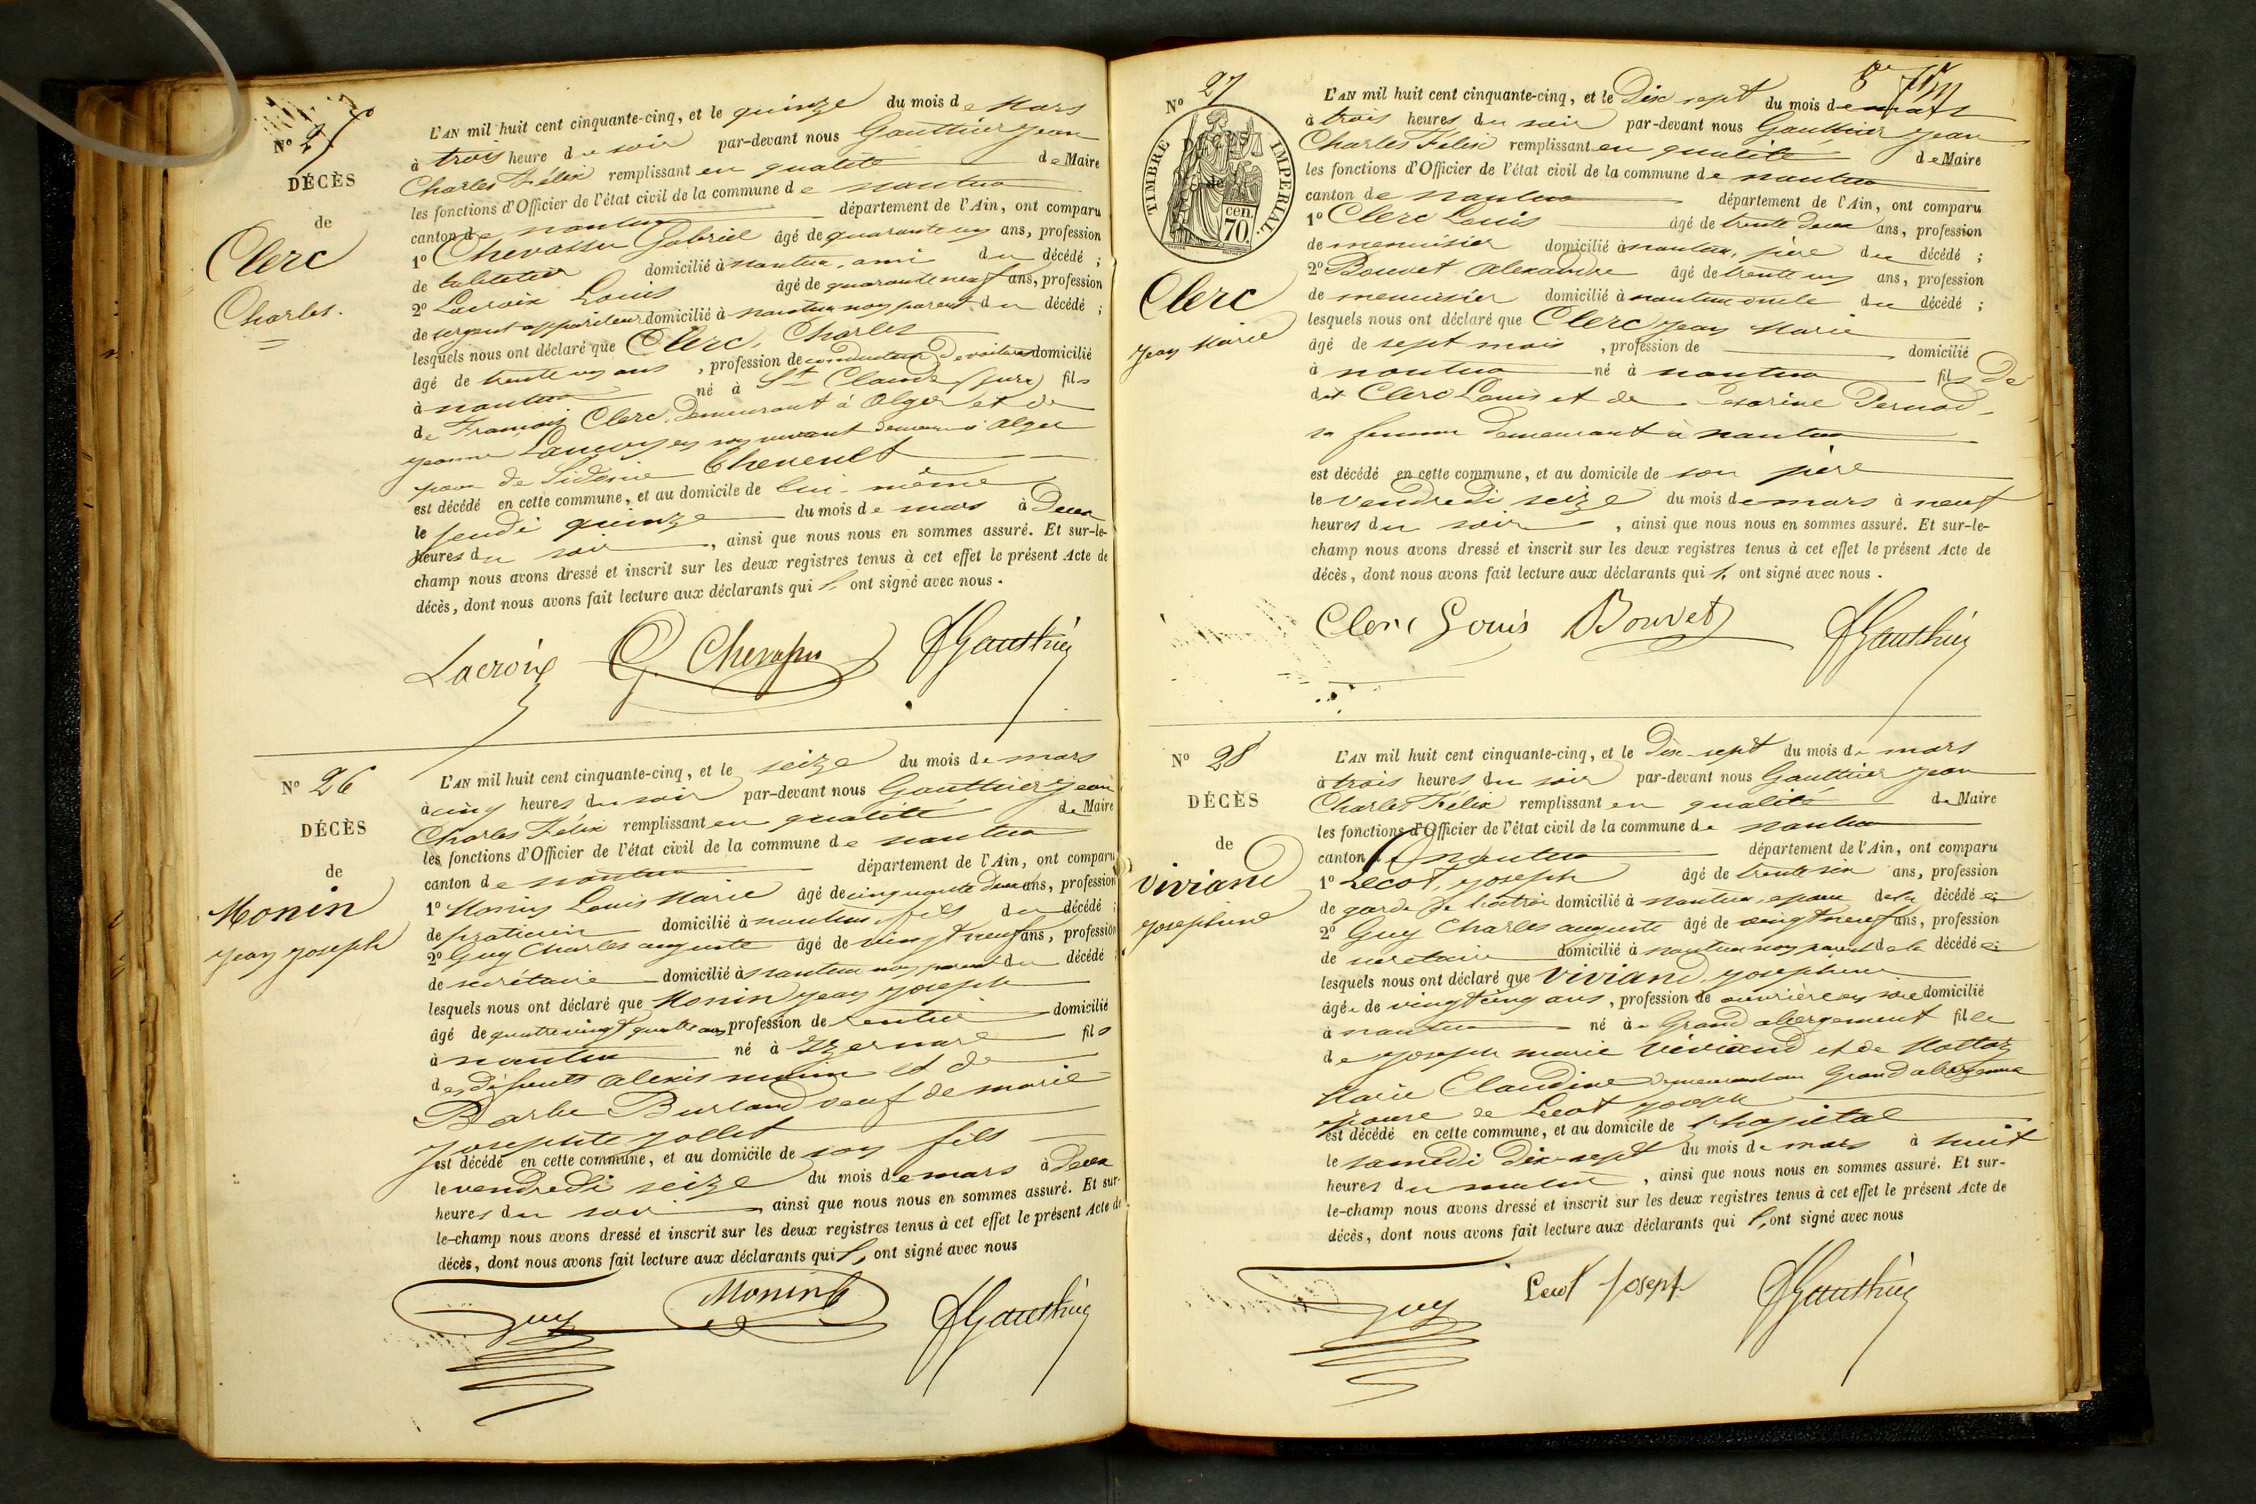 Nº 25
DÉCÈS
de
Clerc
Charles.
L'AN mil huit cent cinquante-cinq, et le quinze du mois de Mars
à trois heure du soir par-devant nous Gauthier Jean
Charles Félix remplissant en qualité de Maire
les fonctions d'Officier de l'état civil de la commune de nantua
canton de nantua département de l'Ain, ont comparu
1º Chevassu Gabriel âgé de quarante un ans, profession
de tabletier domicilié à nantua, ami du décédé ;
2º Lacroix Louis âgé de quarante neuf ans, profession
de sergent appariteur domicilié à nantua non parent du décédé ;
lesquels nous ont déclaré que Clerc, Charles
âgé de trente un ans , profession de conducteur de voitures domicilié
à nantua né à St Claude (jura) fils
de François Clerc, demeurant à Alger et de
Jeanne en son vivant demeurant à Alger
de
est décédé en cette commune, et au domicile de lui-même
le jeudi quinze du mois de mars à Deux
heures du soir , ainsi que nous nous en sommes assuré. Et sur-le-
champ nous avons dressé et inscrit sur les deux registres tenus à cet effet le présent Acte de
décès, dont nous avons fait lecture aux déclarants qui l' ont signé avec nous .
Lacroix G. Chevassu Gauthier
Nº 26
DÉCÈS
de
Monin
Jean Joseph
L'AN mil huit cent cinquante-cinq, et le seize du mois de mars
à cinq heures du soir par-devant nous Gauthier Jean
Charles Félix remplissant en qualité de Maire
les fonctions d'Officier de l'état civil de la commune de nantua
canton de nantua département de l'Ain, ont comparu
1º Monin Louis Marie âgé de cinquante deux ans, profession
de praticien domicilié à nantua, fils du décédé ;
2º Guy Charles auguste âgé de vingt neuf ans, profession
de secrétaire domicilié à nantua non parent du décédé ;
lesquels nous ont déclaré que Monin Jean Joseph
âgé de quatre vingt quatre ans profession de rentier domicilié
à nantua né à Izernore fils
des défunts Alexis monin et de
Barbe Burland veuf de marie
Josephte Jollet
est décédé en cette commune, et au domicile de son fils
le vendredi seize du mois de mars à deux
heures du soir ainsi que nous nous en sommes assuré. Et sur-
le-champ nous avons dressé et inscrit sur les deux registres tenus à cet effet le présent Acte de
décès, dont nous avons fait lecture aux déclarants qui l' ont signé avec nous
Guy Monin Gauthier
Nº 27
TIMBRE IMPERIAL.
cen. 70.
DÉCÈS
de
Clerc
Jean Marie
L'AN mil huit cent cinquante-cinq, et le Dix sept du mois de mars
à trois heures du soir par-devant nous Gauthier Jean
Charles Félix remplissant en qualité de Maire
les fonctions d'Officier de l'état civil de la commune de nantua
canton de nantua département de l'Ain, ont comparu
1º Clerc Louis âgé de trente deux ans, profession
de menuisier domicilié à nantua, père du décédé ;
2º Bouvet Alexandre âgé de trente un ans, profession
de menuisier domicilié à nantua oncle du décédé ;
lesquels nous ont déclaré que Clerc Jean Marie
âgé de sept mois , profession de domicilié
à nantua né à nantua fils De
dit Clerc Louis et de Césarine Pernod
sa femme demeurant à nantua
est décédé en cette commune, et au domicile de son père
le vendredi seize du mois de mars à neuf
heures du soir , ainsi que nous nous en sommes assuré. Et sur-le-
champ nous avons dressé et inscrit sur les deux registres tenus à cet effet le présent Acte de
décès, dont nous avons fait lecture aux déclarants qui l' ont signé avec nous .
Clerc Louis Bouvet Gauthier
Nº 28
DÉCÈS
de
Viviand
Josephine
L'AN mil huit cent cinquante-cinq, et le Dix-sept du mois de mars
à trois heures du soir par-devant nous Gauthier Jean
Charles Félix remplissant en qualité de Maire
les fonctions d'Officier de l'état civil de la commune de nantua
canton de nantua département de l'Ain, ont comparu
1º Lecot, Joseph âgé de trente six ans, profession
de garde de l'octroi domicilié à nantua, époux de la décédée ;
2º Guy Charles auguste âgé de vingt neuf ans, profession
de secrétaire domicilié à nantua non parent de la décédée ;
lesquels nous ont déclaré que Viviand, Josephine
âgée de vingt cinq ans , profession de ouvrière en soie domicilié
à nantua né au Grand abergement fille
de Joseph marie Viviand et de Mottaz
Marie Claudine demeurant au Grand abergement
épouse de Lecot Joseph
est décédé en cette commune, et au domicile de l'hopital
le samedi dix-sept du mois de mars à huit
heures du matin , ainsi que nous nous en sommes assuré. Et sur-
le-champ nous avons dressé et inscrit sur les deux registres tenus à cet effet le présent Acte de
décès, dont nous avons fait lecture aux déclarants qui l' ont signé avec nous
Guy Lecot Joseph Gauthier